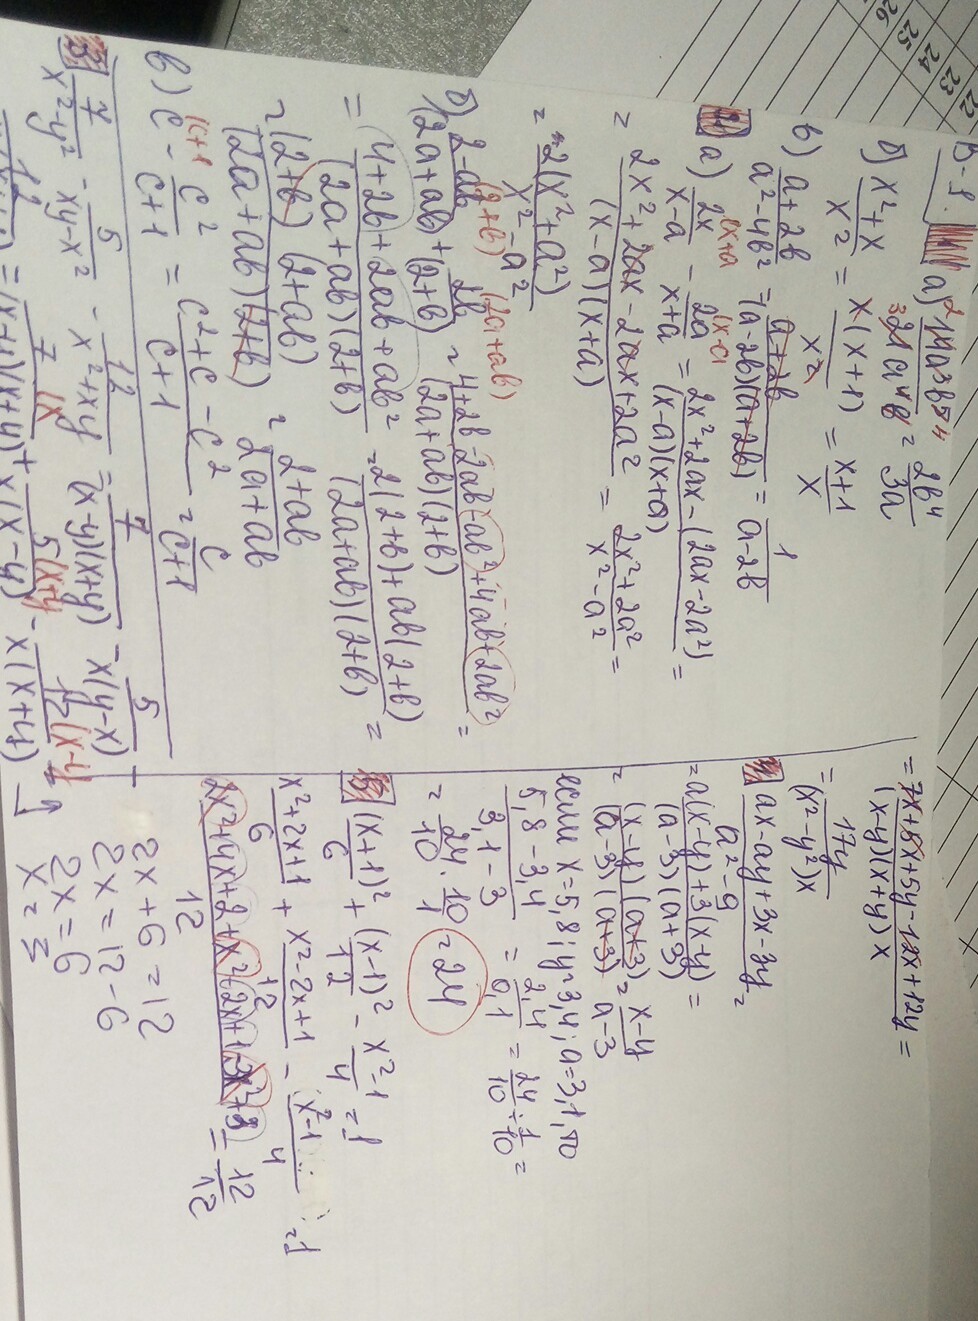 22
23
24
25
26
В-1. 1 а)
б) x²+x / x² = x(x+1) / x² = x+1 / x
в) a+2b / a²-4b² = a+2b / (a-2b)(a+2b) = 1 / a-2b
2 а) 2x / x-a - 2a / x+a = 2x²+2ax-(2ax-2a²) / (x-a)(x+a) =
= 2x²+2ax-2ax+2a² / (x-a)(x+a) = 2x²+2a² / x²-a² =
= 2(x²+a²) / x²-a²
б) 2-ab / (2a+ab) + 2b / (2+b) = 4+2b-2ab-ab²+4ab+2ab² / (2a+ab)(2+b) =
= 4+2b+2ab+ab² / (2a+ab)(2+b) = 2(2+b)+ab(2+b) / (2a+ab)(2+b) =
= (2+b)(2+ab) / (2a+ab)(2+b) = 2+ab / 2a+ab
в) c - c² / c+1 = c²+c-c² / c+1 = c / c+1
3 7 / x²-y² - 5 / xy-x² - 12 / x²+xy = 7 / (x-y)(x+y) - 5 / x(y-x) -
= 7x / (x-y)(x+y) + 5(x+y) / x(x-y) - 12(x-y) / x(x+y)
= 7x+5x+5y-12x+12y / (x-y)(x+y)x =
= 17y / (x²-y²)x
4 ax-ay+3x-3y / a²-9 =
= a(x-y)+3(x-y) / (a-3)(a+3) =
= (x-y)(a+3) / (a-3)(a+3) = x-y / a-3
если x=5,8; y=3,4; a=3,1, то
5,8-3,4 / 3,1-3 = 2,4 / 0,1 = 24 / 10 ÷ 1 / 10 =
= 24 / 10 · 10 / 1 = 24
5 (x+1)² / 6 + (x-1)² / 12 - x²-1 / 4 = 1
x²+2x+1 / 6 + x²-2x+1 / 12 - x²-1 / 4 = 1
2x²+4x+2+x²-2x+1-3x²+3 / 12 = 12 / 12
2x+6=12
2x=12-6
2x=6
x=3